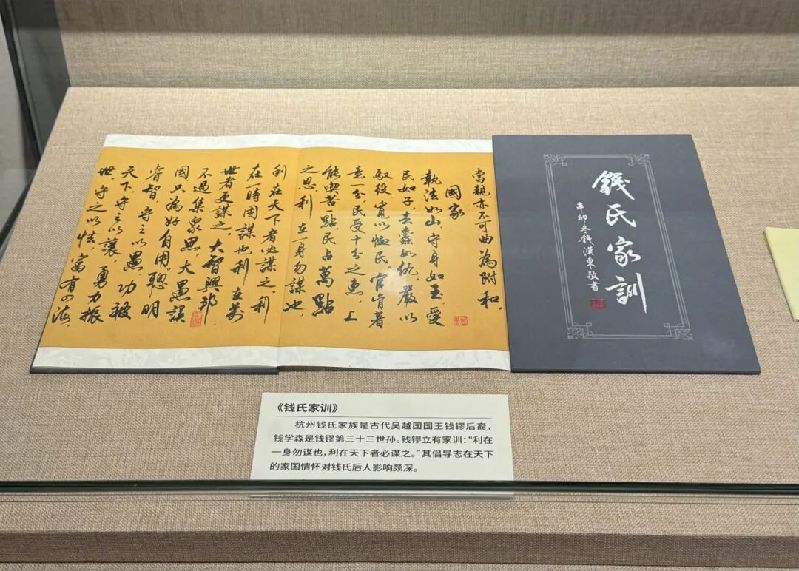 當親亦不可曲為附和
國家
執法如山守身如玉愛
民如子去蠹如仇嚴以
馭役寬以恤民官肯着
意一分民受十分之惠上
能喫苦一點民占萬點
之恩利在一身勿謀也
利在天下者必謀之利
在一時固謀也利在萬
世者更謀之大智興邦
不過集眾思大愚誤
國只為好自用聰明
睿智守之以愚功被
天下守之以讓勇力振
世守之以怯富有四海
錢氏家訓
辛卯冬錢漢東敬書
《钱氏家训》
杭州钱氏家族是古代吴越国国王钱镠后裔，
钱学森是钱镠第三十三世孙。钱镠立有家训：“利在
一身勿谋也，利在天下者必谋之。”其倡导志在天下
的家国情怀对钱氏后人影响颇深。